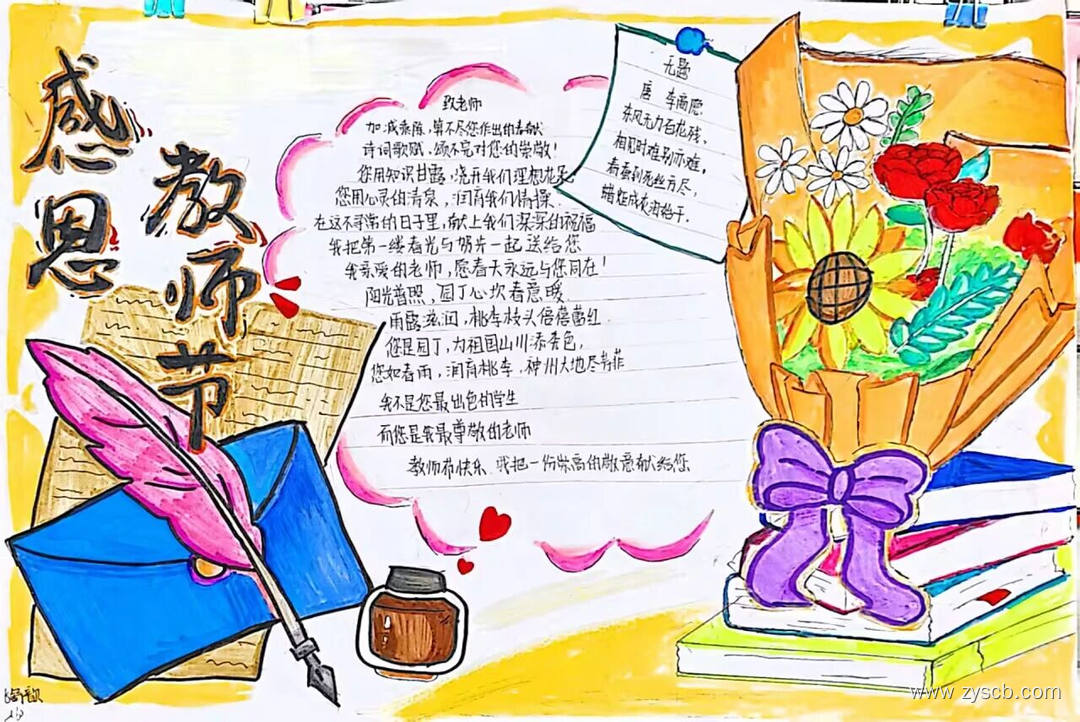 感恩
教师节
致老师
加减乘除,算不尽您作出的奉献
诗词歌赋,颂不完对您的崇敬!
您用知识甘露,浇开我们理想花朵
您用心灵的清泉,润育我们情操.
在这不寻常的日子里,献上我们深深的祝福
我把第一缕春光与贺片一起送给您
我亲爱的老师,愿春天永远与您同在!
阳光普照,园丁心坎春意暖.
雨露滋润,桃李枝头倍蓓蕾红.
您是园丁,为祖国山川添景色,
您如春雨,润育桃李,神州大地尽芳菲
我不是您最出色的学生
而您是我最尊敬的老师
教师节快乐,我把一份崇高的敬意献给您
无题
唐 李商隐
东风无力百花残,
相见时难别亦难,
春蚕到死丝方尽,
蜡炬成灰泪始干.
www.zyscb.com